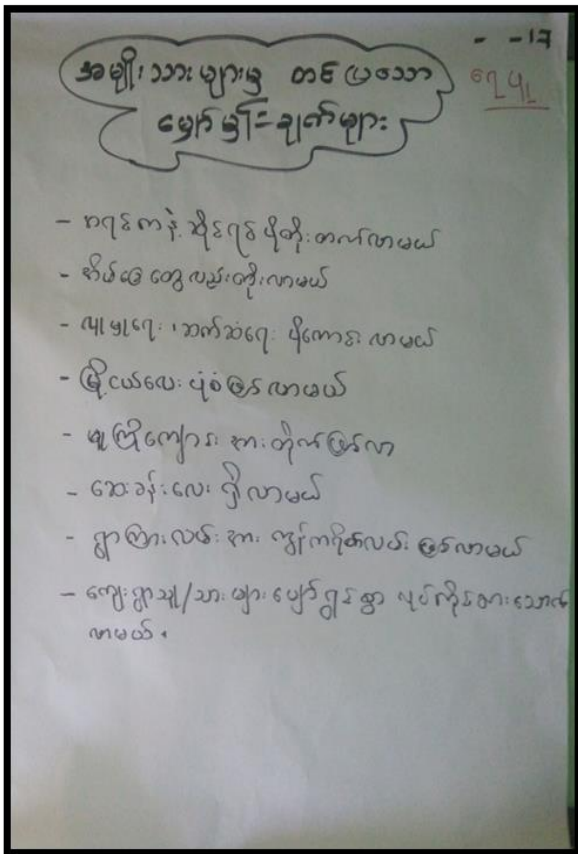 - - 17
အမျိုးသားများမှ တင်ပြသော
ရေပူ
မျှော်မှန်းချက်များ
- ကရင်ကနဲ့ ဆိုင်ရင် ပိုတိုးတက်လာမယ်
- အိမ်ခြေတွေလည်းတိုးလာမယ်
- လူမှုရေး၊ ဆက်ဆံရေး ပိုကောင်းလာမယ်
- မြို့ငယ်လေး ပုံစံဖြစ်လာမယ်
- မူကြိုကျောင်း အားတိုက်ဖြစ်လာ
- ဆေးခန်းလေး ရှိလာမယ်
- ရွာကြားလမ်းအား ကွန်ကရိတ်လမ်း ဖြစ်လာမယ်
- ကျေးရွာသူ/သားများ ပျော်ရွှင်စွာ လုပ်ကိုင်စားသောက်
လာမယ်။